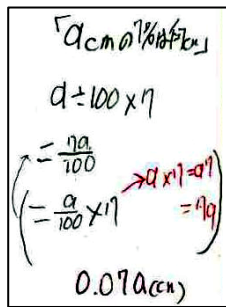 「acmの7%は何cm」
a÷100×7
=7a/100
(=a/100×7)
→a×7=a7
=7a
0.07a(cm)